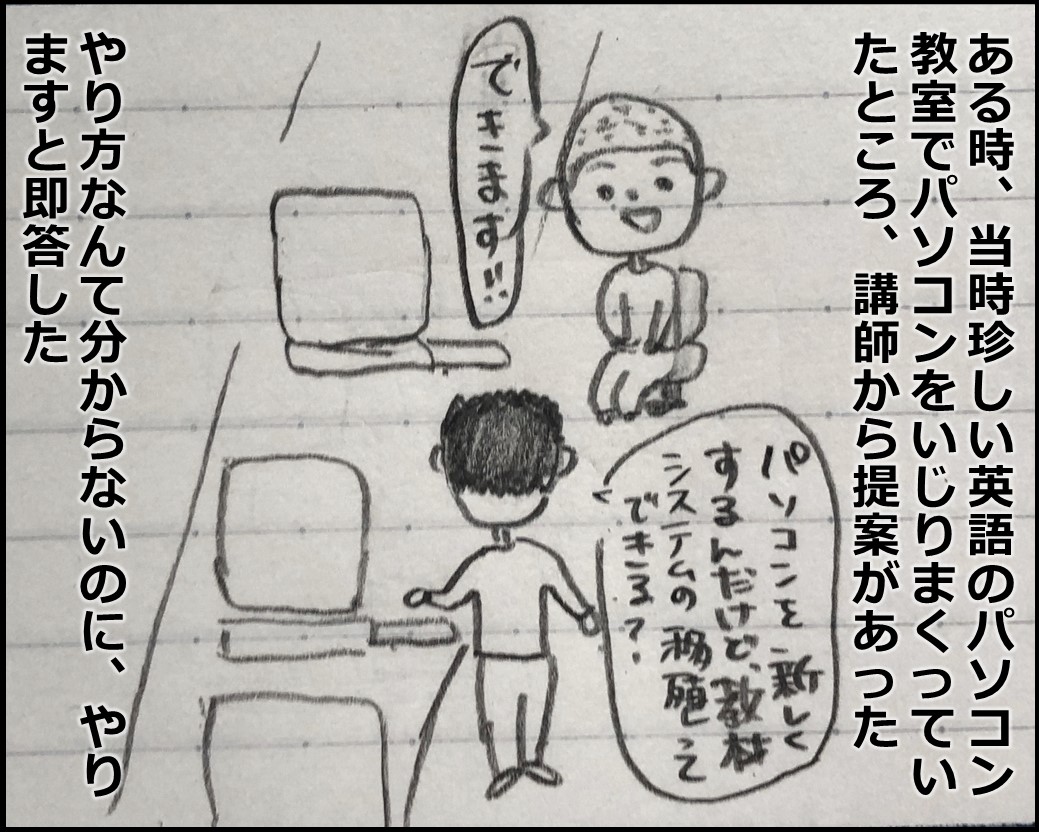 ある時、当時珍しい英語のパソコン
教室でパソコンをいじりまくってい
たところ、講師から提案があった
できます!!
パソコンを新しく
するんだけど、教材
システムの移願って
できる?
やり方なんて分からないのに、やり
ますと即答した